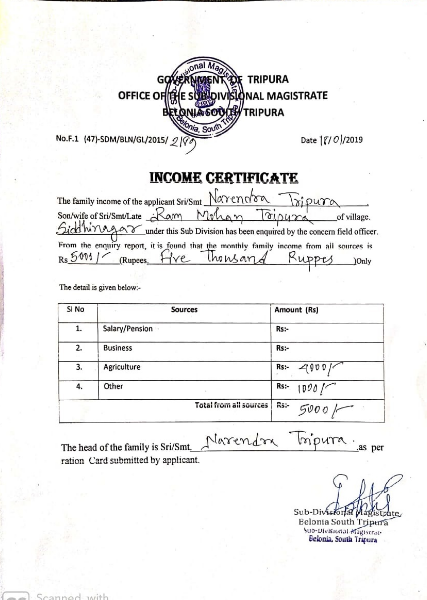 Sub-Divisional Magistrate
Belonia, South Tripura
GOVERNMENT OF TRIPURA
OFFICE OF THE SUB-DIVISIONAL MAGISTRATE
BELONIA SOUTH TRIPURA
No.F.1 (47)-SDM/BLN/GL/2015/ Date 18/01/2019
INCOME CERTIFICATE
The family income of the applicant Sri/Smt Narendra Tripura
Son/wife of Sri/Smt/Late Ram Mohan Tripura of village.
Siddhinagar under this Sub Division has been enquired by the concern field officer.
From the enquiry report, it is found that the monthly family income from all sources is
Rs 5000/- (Rupees, Five Thousand Ruppes )Only
The detail is given below:-
Sl No Sources Amount (Rs)
1. Salary/Pension Rs:-
2. Business Rs:-
3. Agriculture Rs:- 4000/-
4. Other Rs:- 1000/-
Total from all sources Rs:- 5000/-
The head of the family is Sri/Smt, Narendra Tripura. as per
ration Card submitted by applicant.
Sub-Divisional Magistrate
Belonia South Tripura
Sub-Divisional Magistrate
Belonia, South Tripura
Scanned with